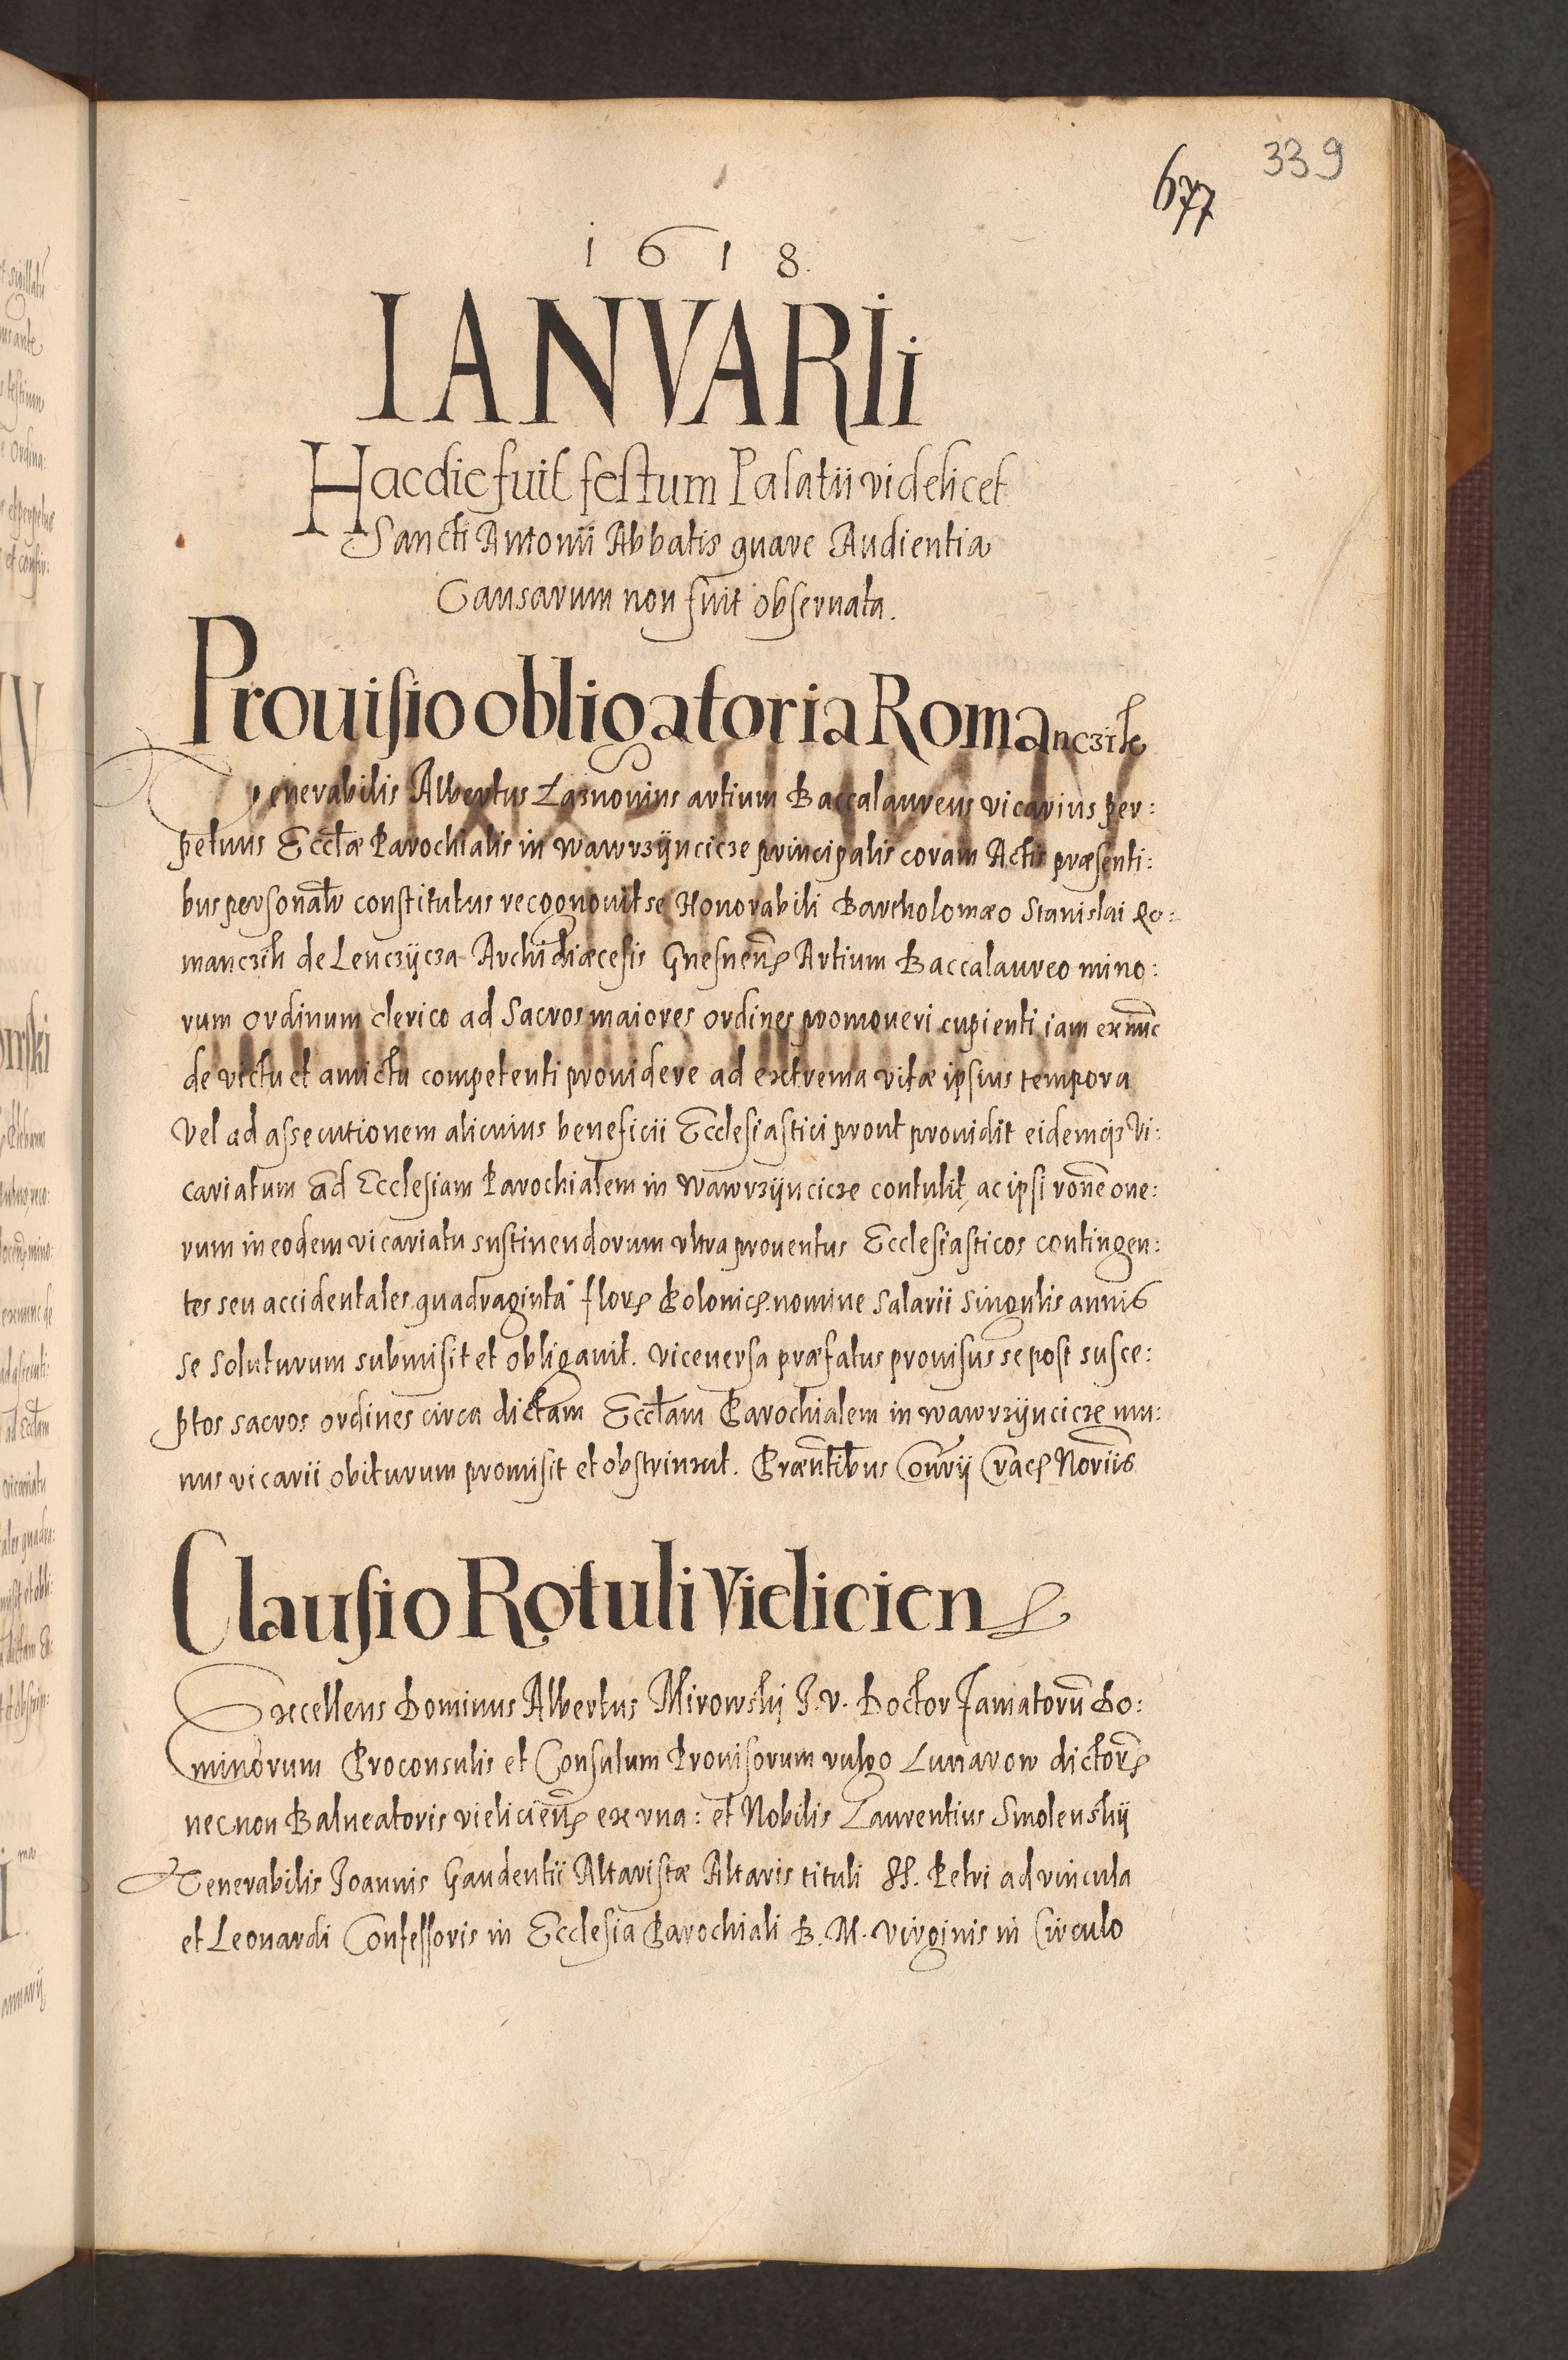 339
677
1618.
IANVARIi
Hac die fuit festum Palatii videlicet
Sancti Antonii Abbatis quare Audientia
Causarum non fuit obseruata.
Prouisio obligatoria Romanczik
Venerabilis Albertus Lasnouius artium Baccalaureus vicarius per:
petuus Eccłæ Parochialis in wawrzÿncicze principalis coram Actis præsenti:
bus personałr constitutus recognouit se Honorabili Bartholomæo Stanislai Ro:
manczik de Lenczÿcza Archidiæcesis Gnesnen̄ Artium Baccalaureo mino:
rum ordinum clerico ad Sacros maiores ordines promoueri cupienti iam ex nūc
de victu et amictu competenti prouidere ad extrema vitæ ipsius tempora
Vel ad assecutionem alicuius beneficii Ecclesiastici prout prouidit eidemqз Vi:
cariatum ad Ecclesiam Parochialem in wawrzÿncicze contulit, ac ipsi rōne one:
rum in eodem vicariatu sustinendorum vltra prouentus Ecclesiasticos contingen:
tes seu accidentales quadraginta flor Polonic nomine Salarii singulis annis
se soluturum submisit et obligauit. viceuersa præfatus prouisus se post susce:
ptos sacros ordines circa dictam Eccłam Parochialem in wawrzÿncicze mu:
nus vicarii obiturum promisit et obstrinxit. Præntibus Con̄rÿ Crac Norīis
Clausio Rotuli Vielicien
Excellens Dominus Albertus Mirowskj J. V. Doctor famatorū Do:
minorum Proconsulis et Consulum Prouisorum vulgo Lunarow dictor
nec non Balneatoris vielicien̄ ex vna: et Nobilis Laurentius Smolenskÿ
Venerabilis Joannis Gaudentii Altaristæ Altaris tituli SS. Petri ad vincula
et Leonardi Confessoris in Ecclesia Parochiali B. M. virginis in Circulo